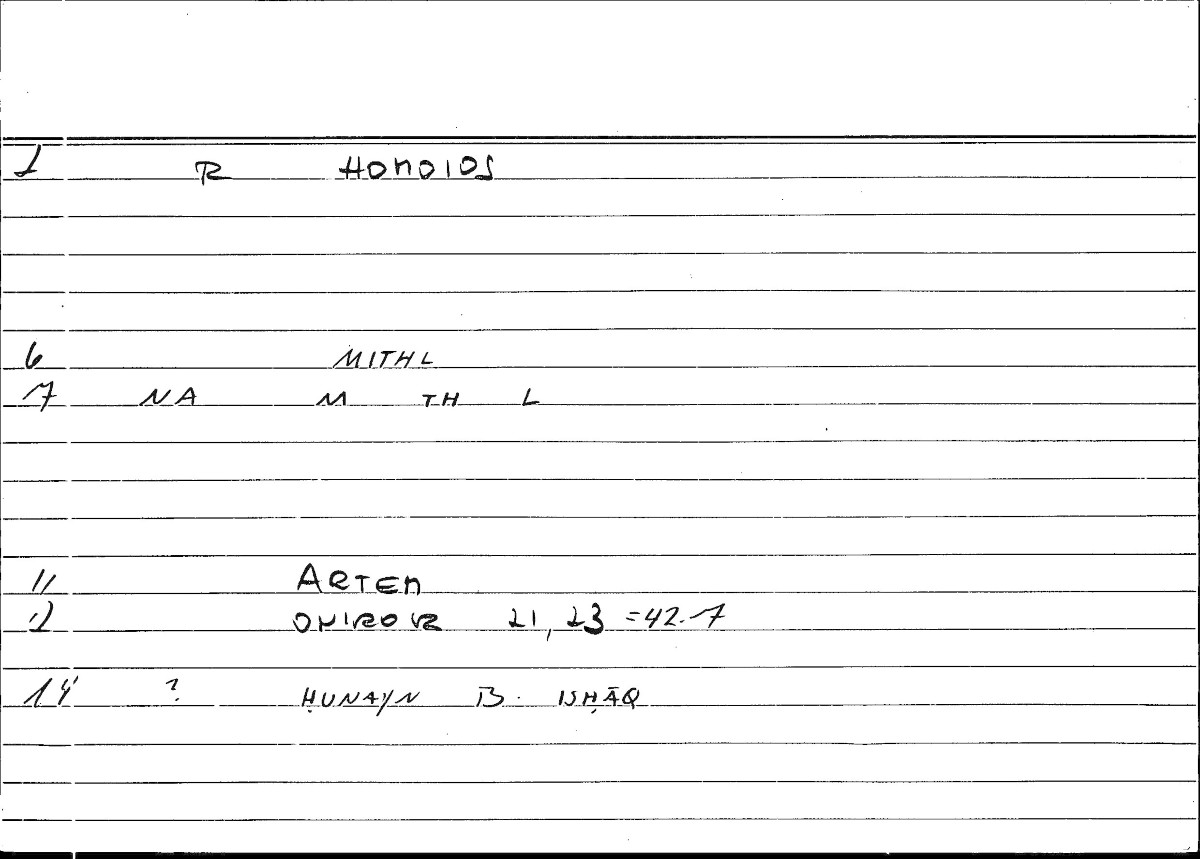 1 R HOMOIOS
6 MITHL
7 NA M TH L
11 ARTEM
12 ONIROKR 21, 23 = 42.7
14 ? ḤUNAYN B. ISḤĀQ